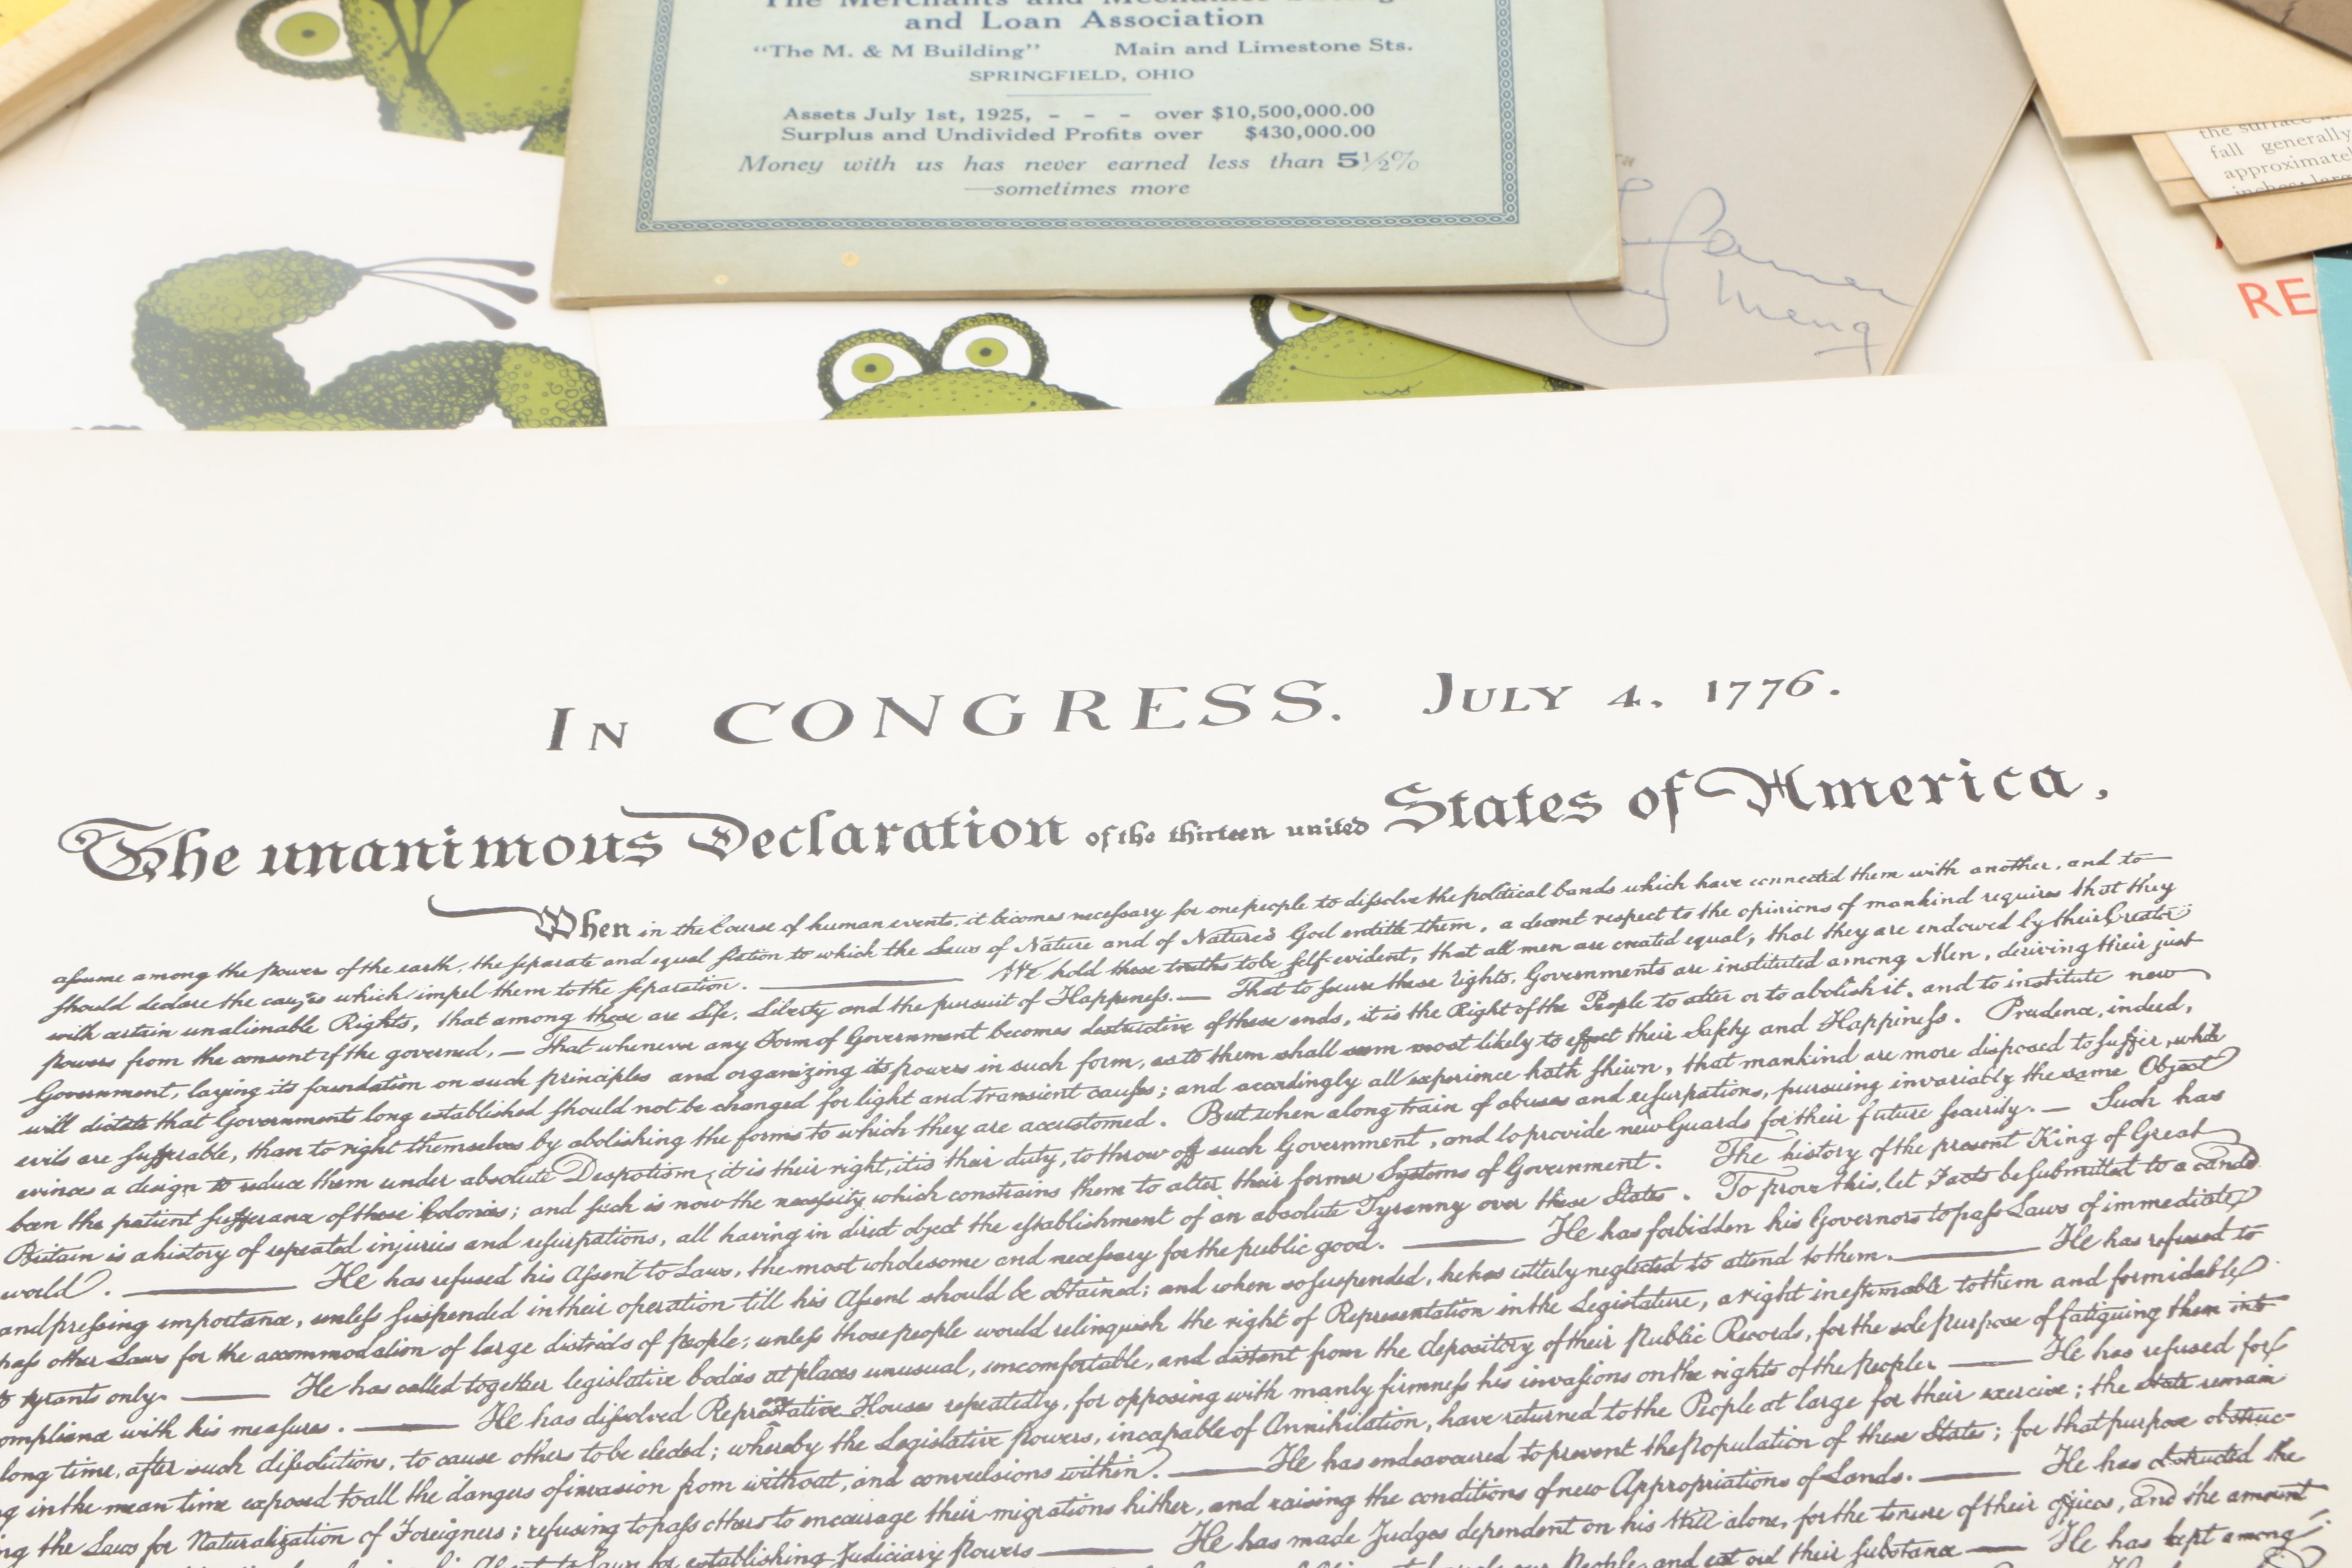 The Merchants and Mechanics Savings
and Loan Association
"The M. & M Building" Main and Limestone Sts.
SPRINGFIELD, OHIO
Assets July 1st, 1925, - - - over $10,500,000.00
Surplus and Undivided Profits over $430,000.00
Money with us has never earned less than 5½%
—sometimes more
the surface
fall generally
approximatel
inches
RE
In CONGRESS. July 4, 1776.
The unanimous Declaration of the thirteen united States of America,
When in the Course of human events, it becomes necessary for one people to dissolve the political bands which have connected them with another, and to
assume among the powers of the earth, the separate and equal station to which the Laws of Nature and of Nature's God entitle them, a decent respect to the opinions of mankind requires that they
should declare the causes which impel them to the separation. — We hold these truths to be self-evident, that all men are created equal, that they are endowed by their Creator
with certain unalienable Rights, that among these are Life, Liberty and the pursuit of Happiness. — That to secure these rights, Governments are instituted among Men, deriving their just
powers from the consent of the governed, — That whenever any Form of Government becomes destructive of these ends, it is the Right of the People to alter or to abolish it, and to institute new
Government, laying its foundation on such principles and organizing its powers in such form, as to them shall seem most likely to effect their Safety and Happiness. Prudence, indeed,
will dictate that Governments long established should not be changed for light and transient causes; and accordingly all experience hath shewn, that mankind are more disposed to suffer, while
evils are sufferable, than to right themselves by abolishing the forms to which they are accustomed. But when a long train of abuses and usurpations, pursuing invariably the same Object
evinces a design to reduce them under absolute Despotism, it is their right, it is their duty, to throw off such Government, and to provide new Guards for their future security. — Such has
been the patient sufferance of these Colonies; and such is now the necessity which constrains them to alter their former Systems of Government. The history of the present King of Great
Britain is a history of repeated injuries and usurpations, all having in direct object the establishment of an absolute Tyranny over these States. To prove this, let Facts be submitted to a candid
world. — He has refused his Assent to Laws, the most wholesome and necessary for the public good. — He has forbidden his Governors to pass Laws of immediate
and pressing importance, unless suspended in their operation till his Assent should be obtained; and when so suspended, he has utterly neglected to attend to them. — He has refused to
pass other Laws for the accommodation of large districts of people, unless those people would relinquish the right of Representation in the Legislature, a right inestimable to them and formidable
to tyrants only. — He has called together legislative bodies at places unusual, uncomfortable, and distant from the depository of their Public Records, for the sole purpose of fatiguing them into
ompliance with his measures. — He has dissolved Representative Houses repeatedly, for opposing with manly firmness his invasions on the rights of the people. — He has refused for
long time, after such dissolutions, to cause others to be elected; whereby the Legislative powers, incapable of Annihilation, have returned to the People at large for their exercise; the State remain
g in the mean time exposed to all the dangers of invasion from without, and convulsions within. — He has endeavoured to prevent the population of these States; for that purpose obstruc-
ng the Laws for Naturalization of Foreigners; refusing to pass others to encourage their migrations hither, and raising the conditions of new Appropriations of Lands. — He has obstructed the
Assent to Laws for establishing Judiciary powers — He has made Judges dependent on his Will alone, for the tenure of their offices, and the amount
our People, and eat out their substance — He has kept among